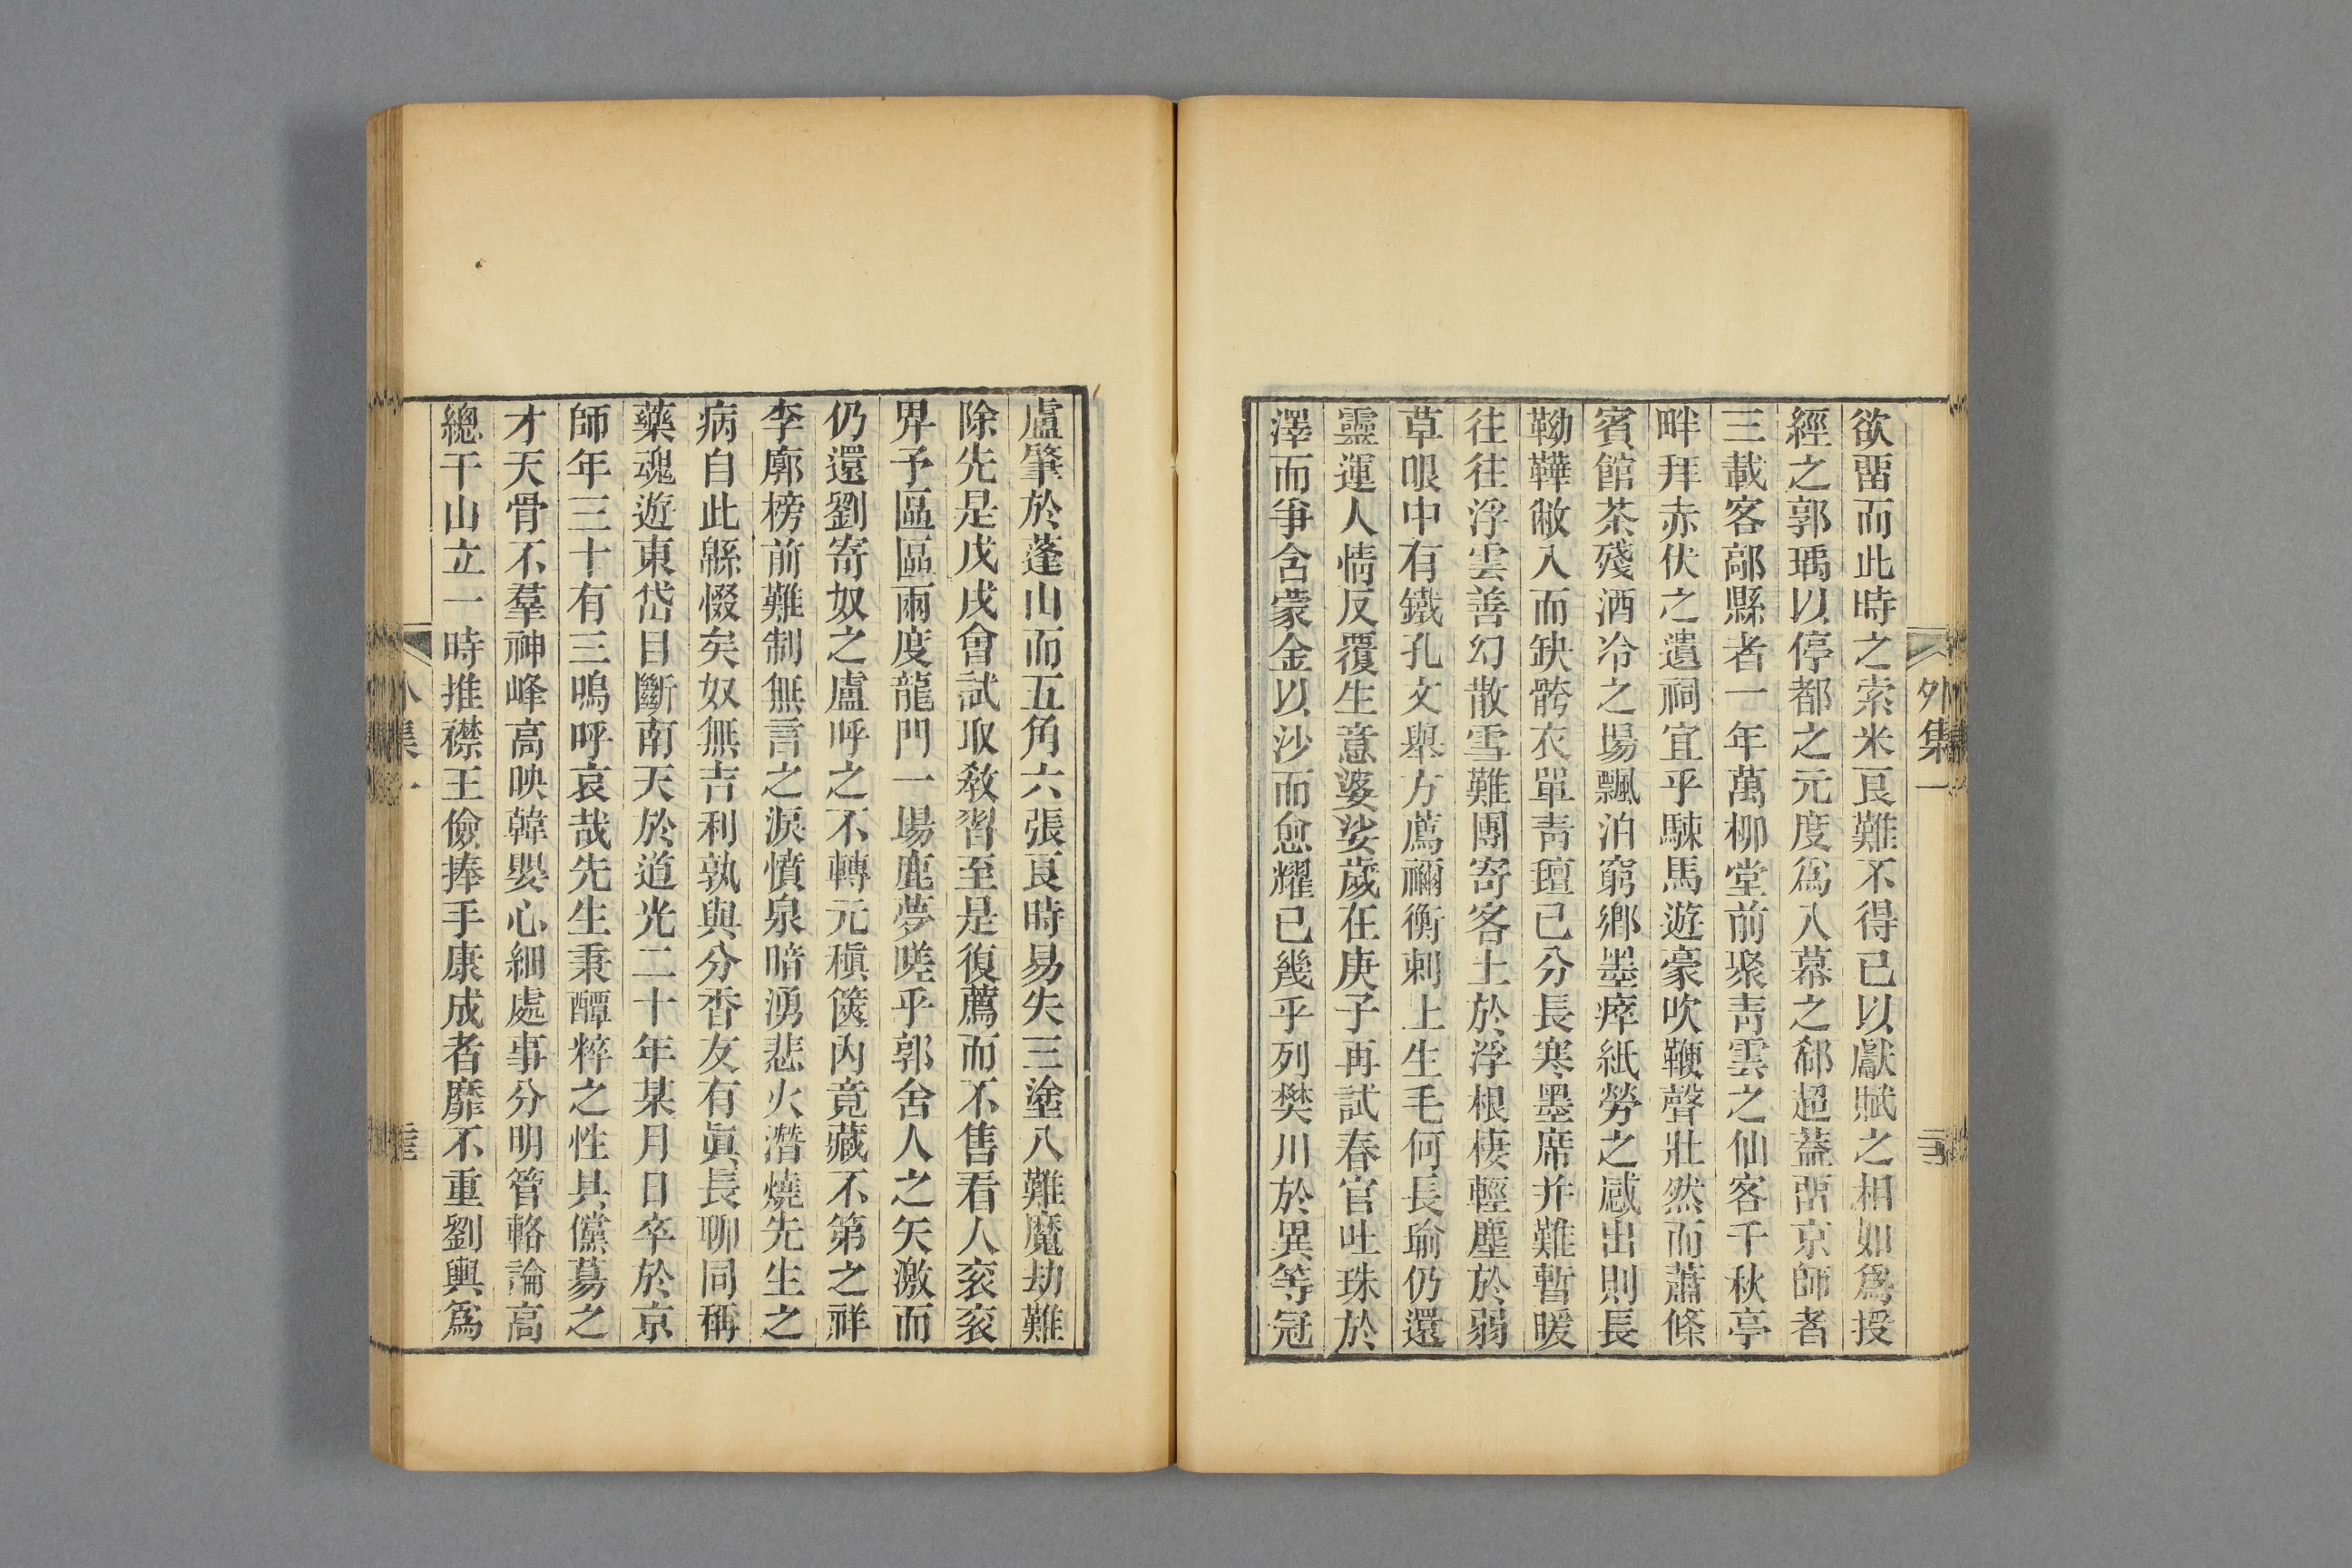 外集一
欲畱而此時之索米良難不得已以獻賦之相如爲授
經之郭瑀以停都之元度爲入幕之郗超葢畱京師者
三載客鄗縣者一年萬柳堂前聚靑雲之仙客千秋亭
畔拜赤伏之遺祠宜乎駷馬遊豪吹鞭聲壯然而蕭條
賓館茶殘酒冷之場飄泊窮鄕墨瘁紙勞之感出則長
靿鞾敝入而缺骻衣單靑氊已分長寒墨席幷難暫暖
往往浮雲善幻散雪難團寄客土於浮根棲輕塵於弱
草眼中有鐵孔文舉方薦禰衡刺上生毛何長瑜仍還
靈運人情反覆生意婆娑歲在庚子再試春官吐珠於
澤而爭含蒙金以沙而愈耀已幾乎列樊川於異等冠
盧肇於蓬山而五角六張良時易失三塗八難魔劫難
除先是戊戌會試取敎習至是復薦而不售看人衮衮
畀予區區兩度龍門一場鹿夢嗟乎郭舍人之矢激而
仍還劉寄奴之盧呼之不轉元稹篋內竟藏不第之祥
李廓榜前難制無言之淚憤泉暗湧悲火潛燒先生之
病自此緜惙矣奴無吉利孰與分香友有眞長聊同稱
藥魂遊東岱目斷南天於道光二十年某月日卒於京
師年三十有三嗚呼哀哉先生秉醰粹之性具儻蕩之
才天骨不羣神峰高映韓嬰心細處事分明管輅論高
總干山立一時推襟王儉捧手康成者靡不重劉輿爲
外集一